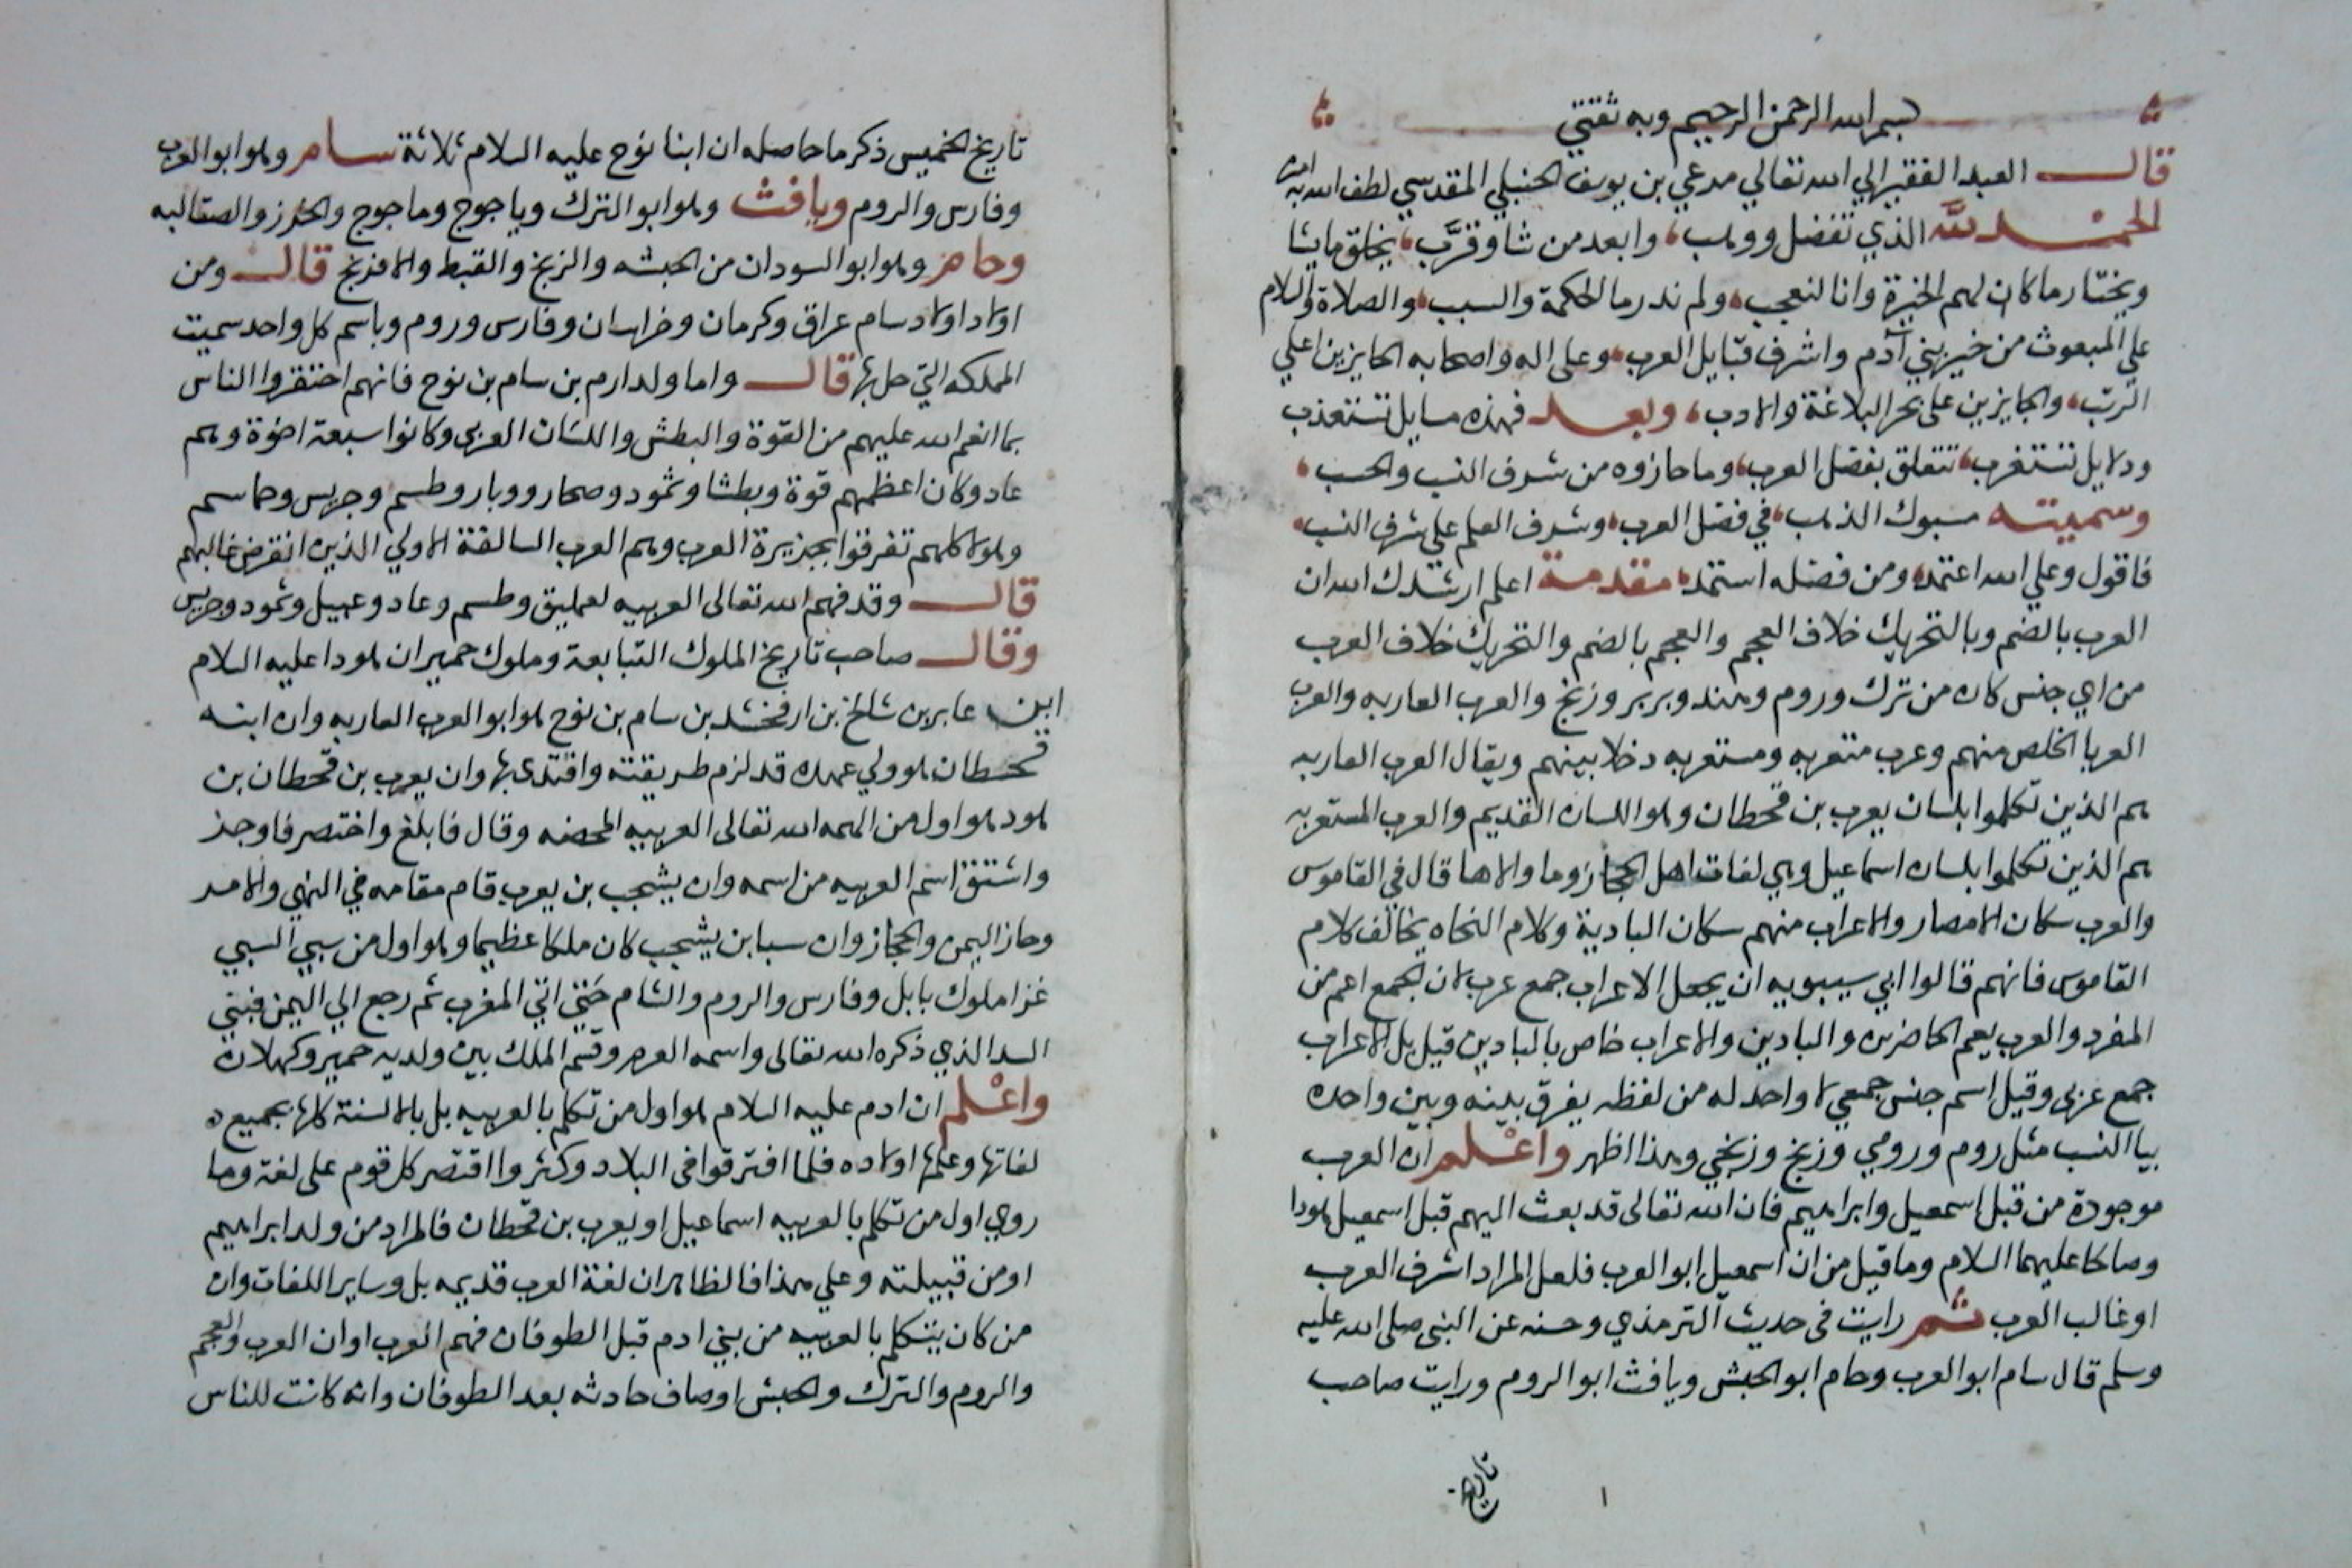 بسم الله الرحمن الرحيم وبه ثقتي
قال العبد الفقير الي الله تعالي مرعي ابن يوسف الحنبلي المقدسي لطف الله به امين
الحمد لله الذي تفضل ووهب، وابعد من شا وقرَّب، يخلق ما يشا
ويختار ما كان لهم الخيرة وانا لنعجب، ولم ندر ما الحكمة والسبب، والصلاة والسلام
علي المبعوث من خير بني آدم واشرف قبايل العرب، وعلى اله واصحابه الحايزين اعلي
الرتب، والجايزين على بحر البلاغة والادب، وبعد فهذه مسايل تستعذب
ودلايل تستغرب، تتعلق بفضل العرب، وما حازوه من شرف النسب والحسب،
وسميته مسبوك الذهب، في فضل العرب، وشرف العلم علي شرف النسب،
فاقول وعلي الله اعتمد، ومن فضله استمد، مقدمة اعلم ارشدك الله ان
العرب بالضم وبالتحريك خلاف العجم والعجم بالضم والتحريك خلاف العرب
من اي جنس كان من ترك وروم وهند وبربر وزنج والعرب العاربه والعرب
العربا الخلص منهم وعرب متعربه ومستعربه دخلا بينهم ويقال العرب العاربه
هم الذين تكلموا بلسان يعرب بن قحطان وهو اللسان القديم والعرب المستعربه
هم الذين تكلموا بلسان اسماعيل وهي لغات اهل الحجاز وما والاها قال في القاموس
والعرب سكان الامصار والاعراب منهم سكان البادية وكلام النحاه يخالف كلام
القاموس فانهم قالوا ابي سيبويه ان يجعل الاعراب جمع عرب لان الجمع اعم من
المفرد والعرب يعم الحاضرين والبادين والاعراب خاص بالبادين قيل بل الاعراب
جمع عربى وقيل اسم جنس جمعي لا واحد له من لفظه يفرق بينه وبين واحده
بيا النسب مثل روم ورومي وزنج وزنجي وهذا اظهر واعلم ان العرب
موجودة من قبل اسمعيل وابراهيم فان الله تعالى قد بعث اليهم قبل اسمعيل هودا
وصالحا عليهما السلام وما قيل من ان اسمعيل ابو العرب فلعل المراد اشرف العرب
او غالب العرب ثم رايت فى حديث الترمذي وحسنه عن النبى صلى الله عليه
وسلم قال سام ابو العرب وحام ابو الحبش ويافث ابو الروم ورايت صاحب
تاريخ
١
تاريخ الخميس ذكر ما حاصله ان ابنا نوح عليه السلام ثلاثة سام وهو ابو العرب
وفارس والروم ويافث وهو ابو الترك وياجوج وماجوج والخزر والصقالبه
وحام وهو ابو السودان من الحبشه والزنج والقبط والافرنج قال ومن
اولاد اولاد سام عراق وكرمان وخراسان وفارس وروم وباسم كل واحد سميت
المملكه التي حل بها قال واما ولد ارم بن سام بن نوح فانهم احتقروا الناس
بما انعم الله عليهم من القوة والبطش واللسان العربى وكانوا سبعة اخوة وهم
عاد وكان اعظمهم قوة وبطشا وثمود وصحار ووبار وطسم وجديس وجاسم
وهولا كلهم تفرقوا بجزيرة العرب وهم العرب السالفة الاولي الذين انقرض غالبهم
قال وقد فهم الله تعالى العربيه لعمليق وطسم وعاد وعبيل وثمود وجديس
وقال صاحب تاريخ الملوك التبابعة وملوك حمير ان هودا عليه السلام
ابن عابر بن شالخ بن ارفخشد بن سام بن نوح هو ابو العرب العاربه وان ابنه
قحطان هو ولي عهده قد لزم طريقته واقتدى بها وان يعرب بن قحطان بن
هود هو اول من الهمه الله تعالى العربيه المحضه وقال فابلغ واختصر فاوجز
واشتق اسم العربيه من اسمه وان يشجب بن يعرب قام مقامه في النهي والامر
وحاز اليمن والحجاز وان سبا بن يشجب كان ملكا عظيما وهو اول من سبي السبي
غزا ملوك بابل وفارس والروم والشام حتى اتي المغرب ثم رجع الي اليمن فبني
السد الذي ذكره الله تعالى واسمه العرم وقسم الملك بين ولديه حمير وكهلان
واعلم ان ادم عليه السلام هو اول من تكلم بالعربيه بل بالالسنة كلها بجميع
لغاتها وعلمها اولاده فلما افترقوا فى البلاد وكثروا اقتصر كل قوم على لغة وما
روي اول من تكلم بالعربيه اسماعيل او يعرب بن قحطان فالمراد من ولد ابراهيم
او من قبيلته وعلي هذا فالظاهر ان لغة العرب قديمه بل وساير اللغات وان
من كان يتكلم بالعربيه من بني ادم قبل الطوفان فهم العرب او ان العرب والعجم
والروم والترك والحبش اوصاف حادثه بعد الطوفان وانه كانت للناس